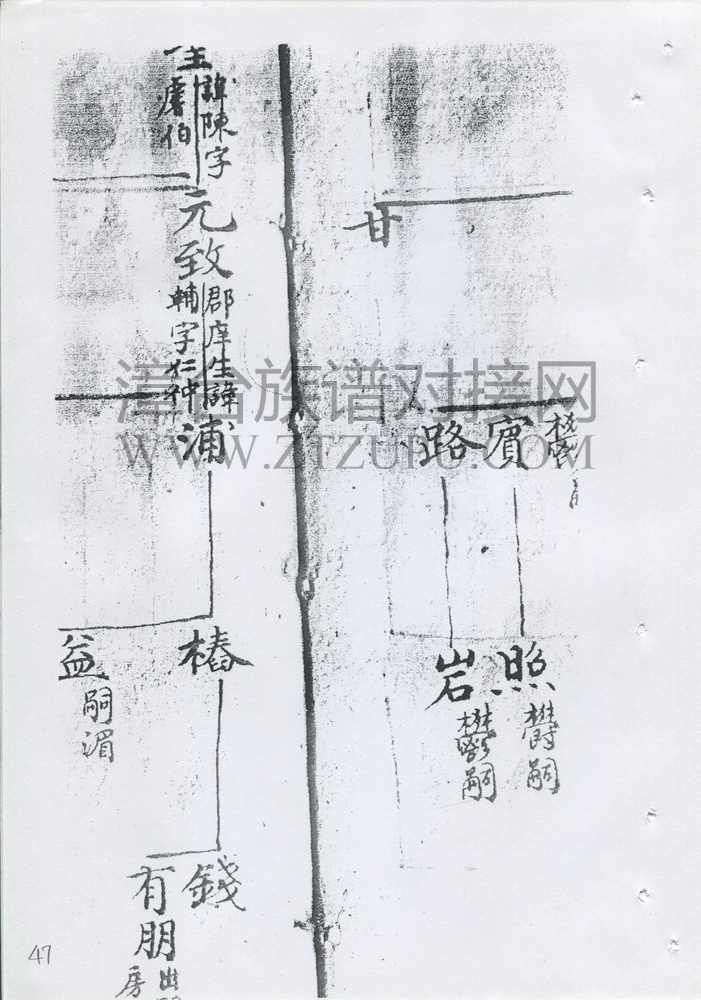 甘
賓
路
照
欝嗣
岩
欝嗣
諱陳字
虞伯
元致
郡庠生諱
輔字仁仲
浦
椿
益
嗣湄
錢
有朋
出
房
漳台族谱对接网
WWW.ZTZUPU.COM
47